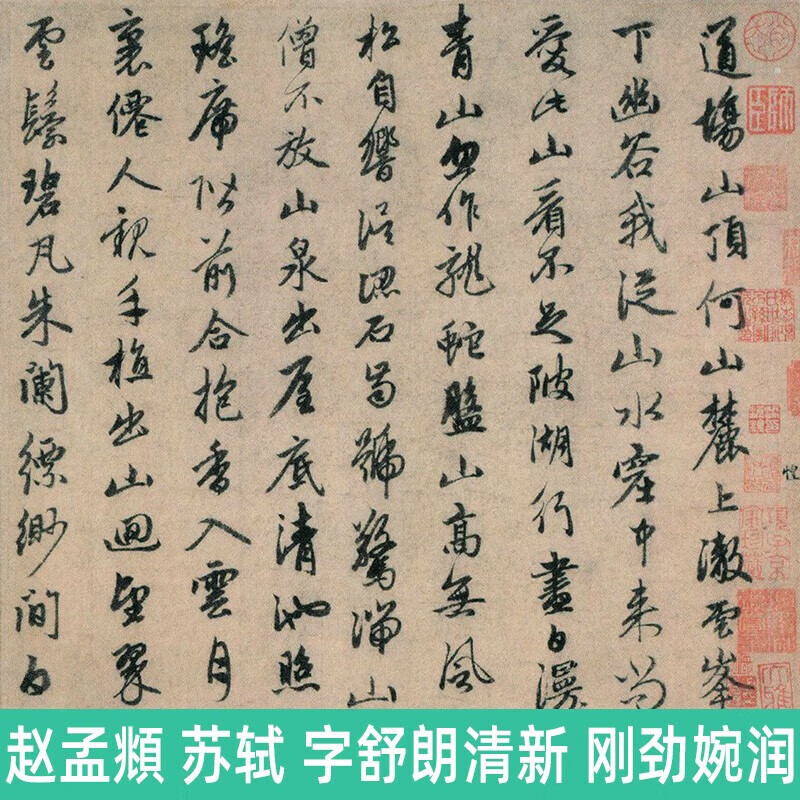 道場山頂何山麓上澈雲峯
下幽谷我從山水窟中来尚
愛此山看不足陂湖行盡白漫
青山忽作龍蛇盤山高無風
松自響誤認石齒號驚湍山
僧不放山泉出屋底清池照
瑤席階前合抱香入雲月
裏僊人親手植出山迴望翠
雲鬟碧瓦朱闌縹緲間白
赵孟頫 苏轼 字舒朗清新 刚劲婉润